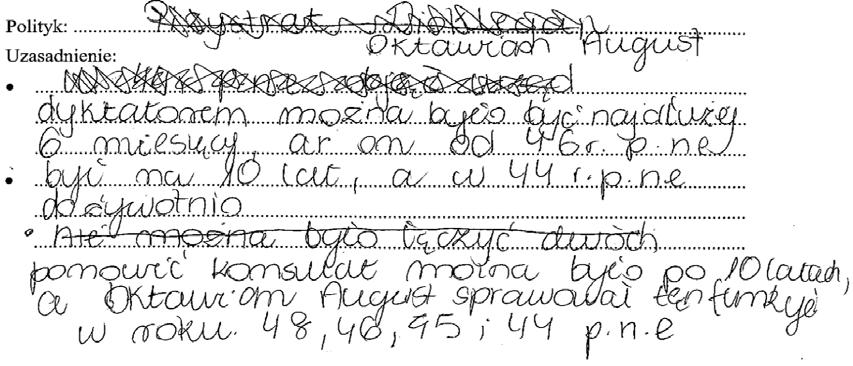 Polityk:
Oktawian August
Uzasadnienie:
dyktatorem można było być najdłużej
6 miesięcy, a on od 46 r. p.n.e
był na 10 lat, a w 44 r. p.n.e
dożywotnio
Nie można było łączyć dwóch
ponowić konsulat można było po 10 latach,
a Oktawian August sprawował tę funkcję
w roku 48, 46, 45 i 44 p.n.e